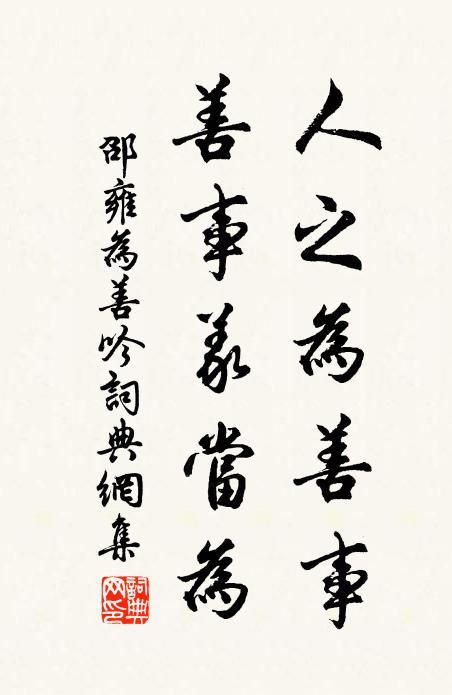 人之為善事
善事義當為
邵雍為善吟詞典網集
詞典網印